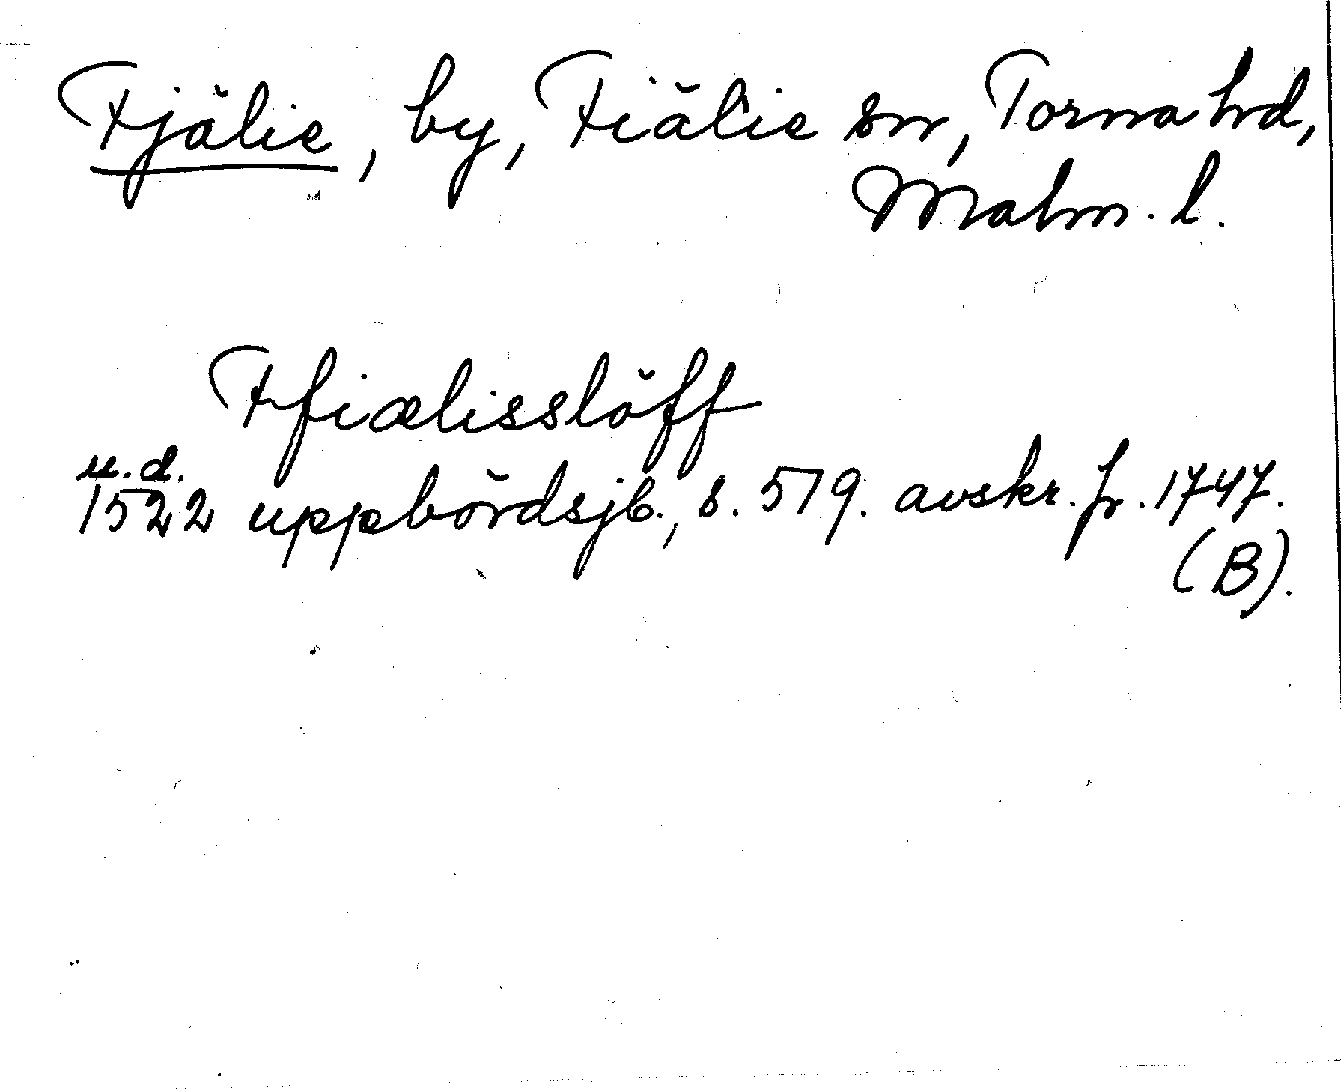 Fjälie, by, Fiälie sn, Torna hrd,
Malm. l.
Ffiælisslöff
u. d.
1522 uppbördsjb., s. 579. avskr. fr. 1747.
(B).